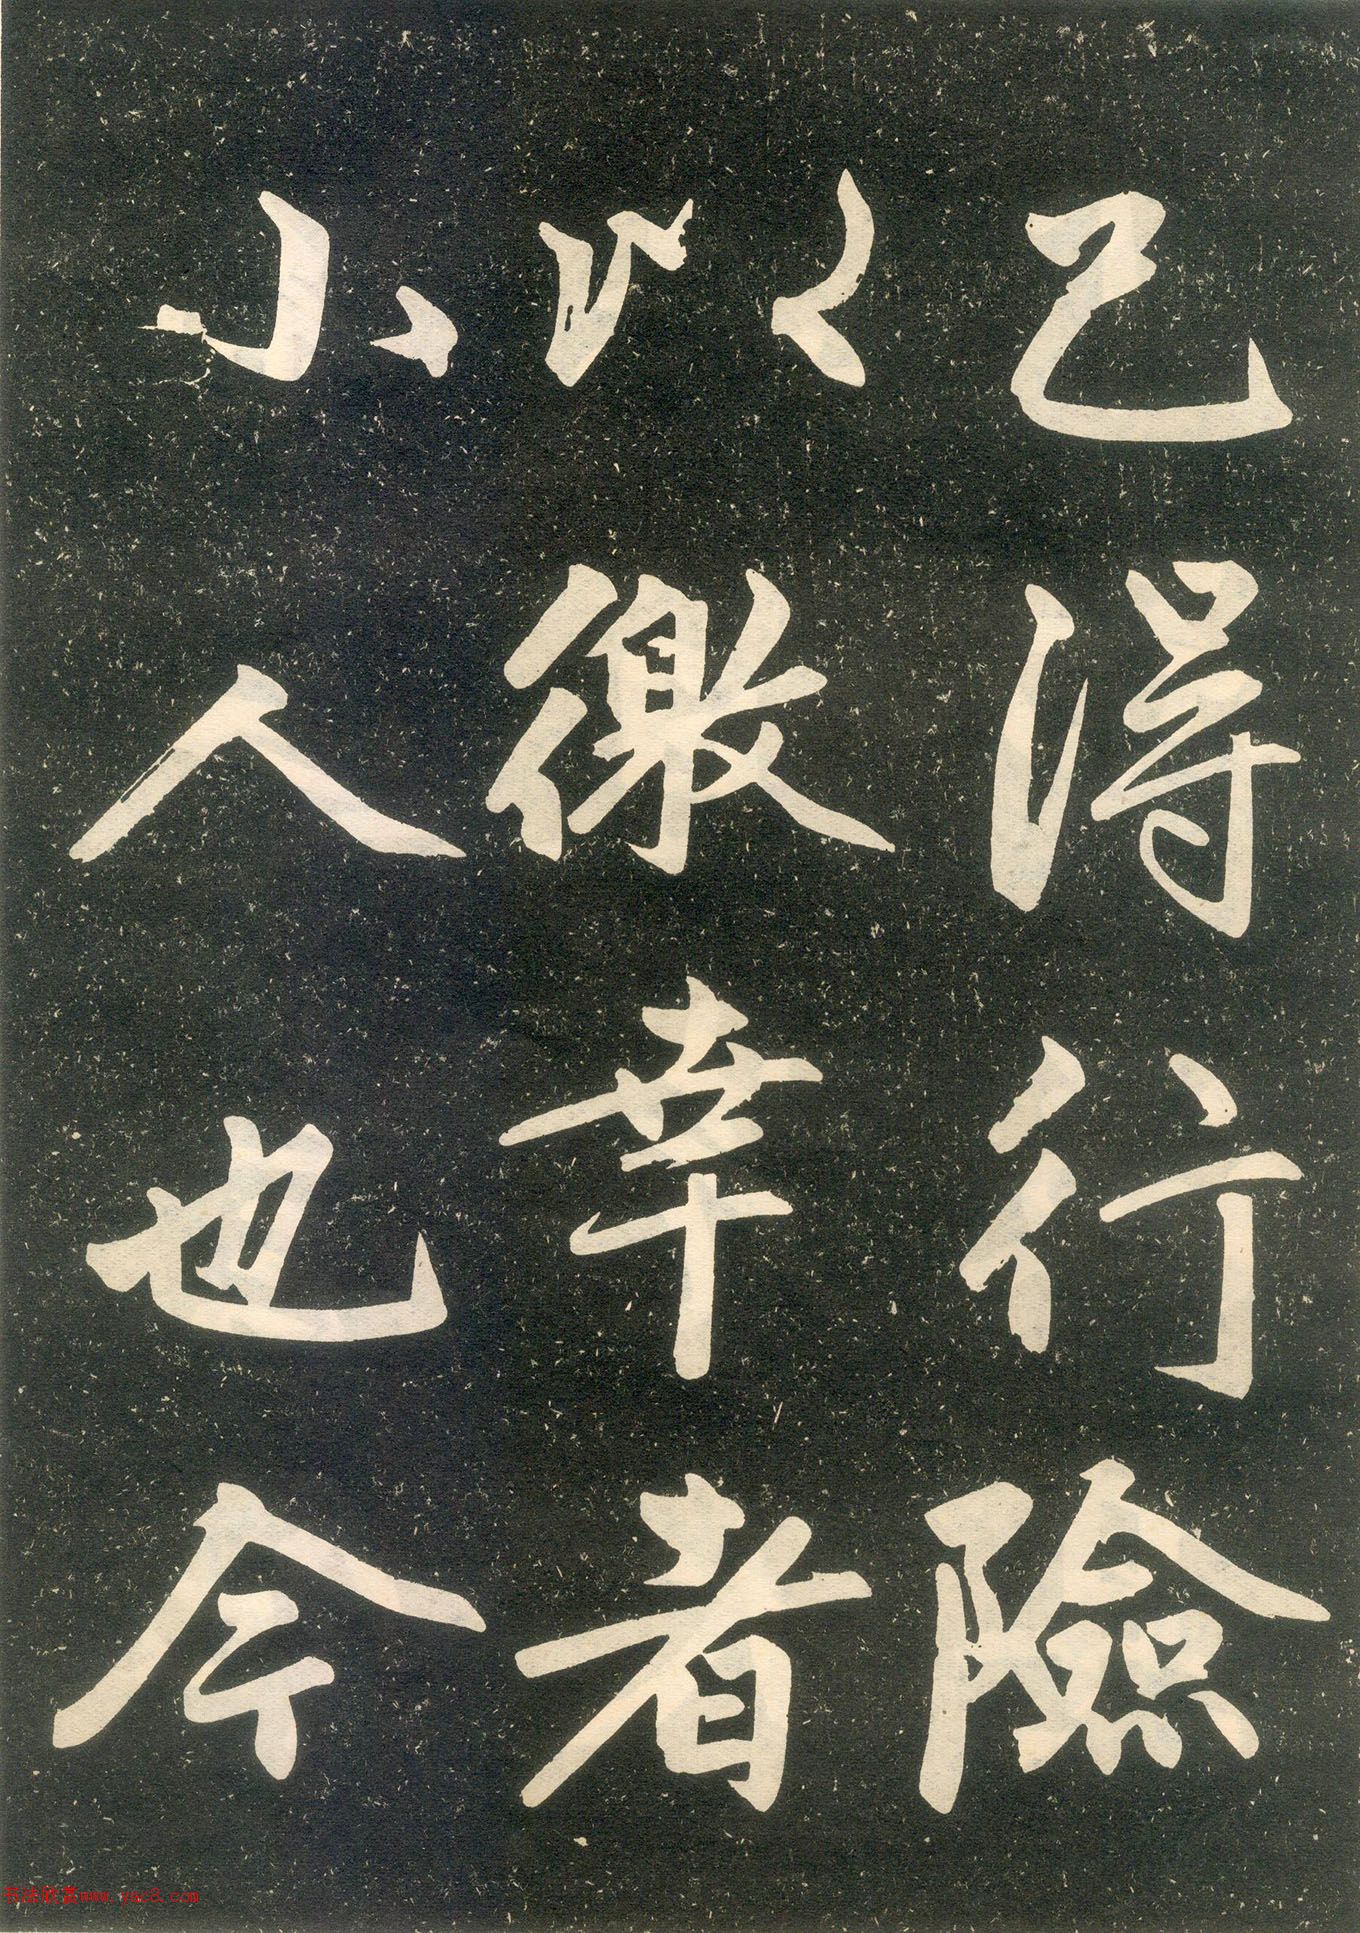 己得行險
以徼幸者
小人也今
书法欣赏www.yac8.com